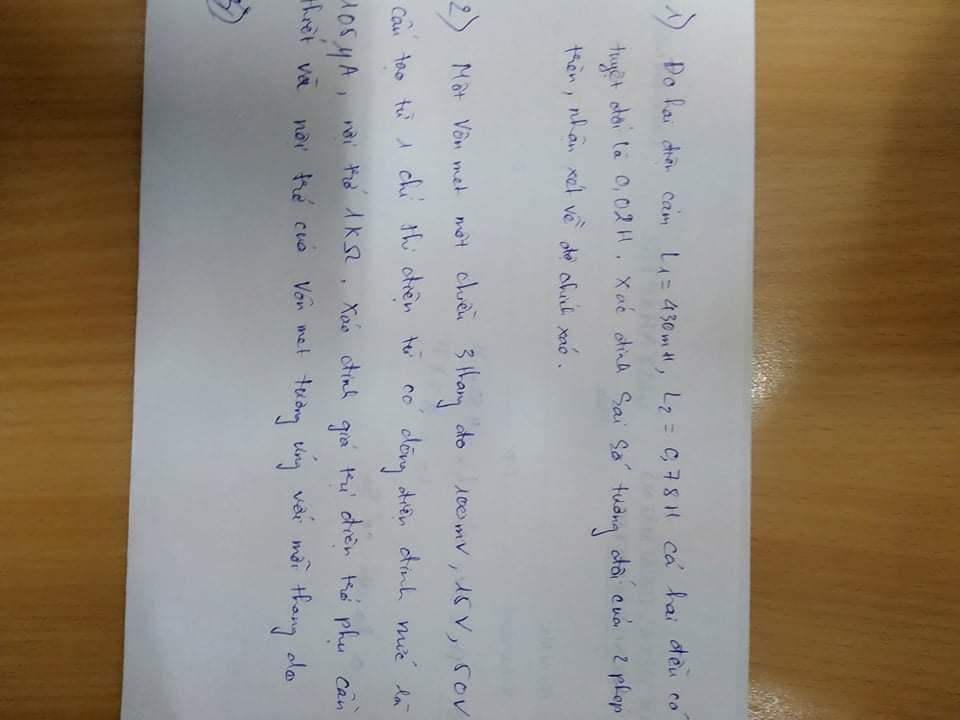 1) Đo hai điện cảm L1 = 430mH, L2 = 0,78H cả hai đều có
tuyệt đối là 0,02H. Xác định sai số tương đối của 2 phép
trên, nhận xét về độ chính xác.
2) Một Vôn met một chiều 3 thang đo 100mV, 15V, 50V
cấu tạo từ 1 chỉ thị điện từ có dòng điện định mức là
105μA, nội trở 1KΩ. Xác định giá trị điện trở phụ cần
thiết và nội trở của Vôn met tương ứng với mỗi thang đo
3)